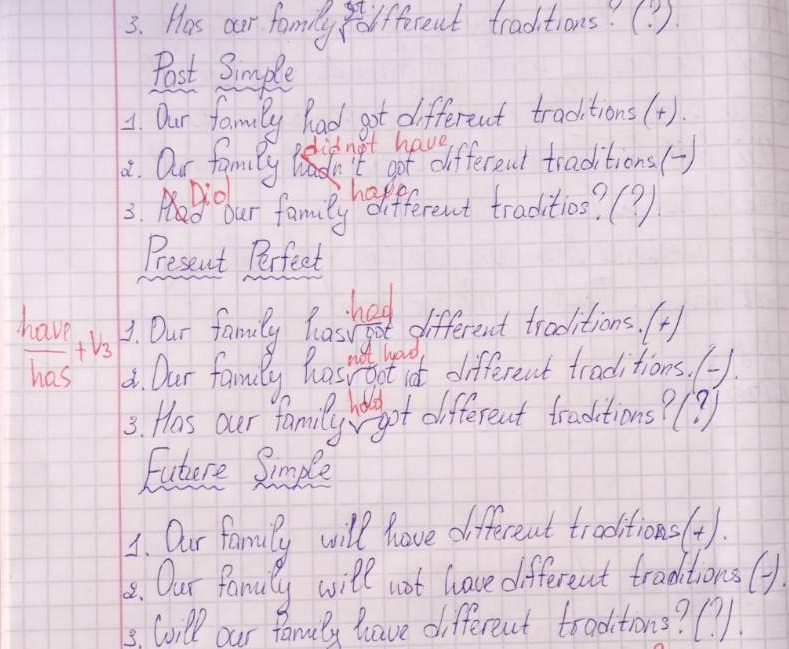 3. Has our family got different traditions? (?).
Past Simple
1. Our family had got different traditions (+).
did not have
2. Our family hadn't got different traditions (-)
Did have
3. Had our family different traditios? (?)
Present Perfect
had
have
has
+V3
1. Our family has got different traditions. (+)
not had
2. Our family has got different traditions. (-).
had
3. Has our family got different traditions? (?)
Future Simple
1. Our family will have different traditions (+).
2. Our family will not have different traditions (-).
3. Will our family have different traditions? (?).